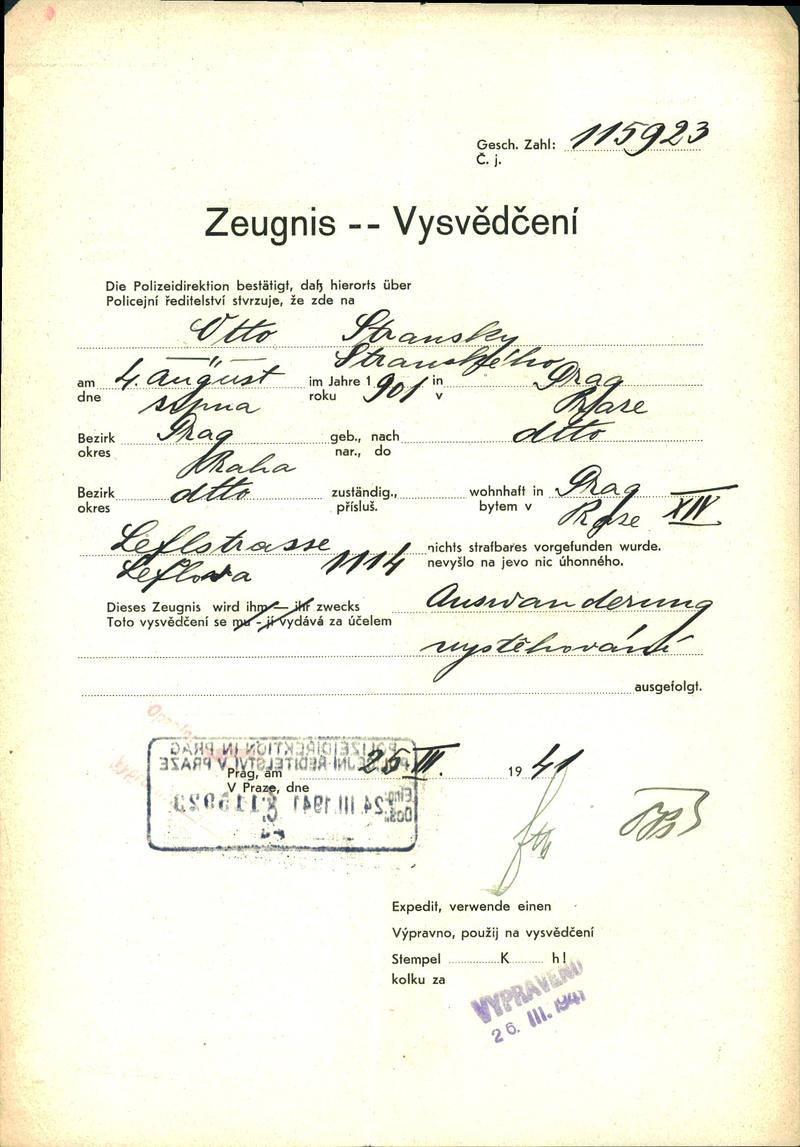 Gesch. Zahl: 115923
Č. j.
Zeugnis -- Vysvědčení
Die Polizeidirektion bestätigt, daß hierorts über
Policejní ředitelství stvrzuje, že zde na
Otto Stransky
—"— Stranského
am 4. august im Jahre 1901 in Prag
dne srpna roku v Praze
Bezirk Prag geb., nach dtto
okres Praha nar., do
Bezirk dtto zuständig., wohnhaft in Prag
okres přísluš. bytem v Praze XIV
Leflstrasse nichts strafbares vorgefunden wurde.
Leflova 1114 nevyšlo na jevo nic úhonného.
Dieses Zeugnis wird ihm — ihr zwecks Auswanderung
Toto vysvědčení se mu - jí vydává za účelem
vystěhování
ausgefolgt.
POLIZEIDIREKTION IN PRAG
POLICEJNÍ ŘEDITELSTVÍ V PRAZE
Prag, am 25 III. 1941
V Praze, dne
Eing.
Doš. 24. III. 1941 115923
Expedit, verwende einen
Výpravno, použij na vysvědčení
Stempel K h!
kolku za
VYPRAVENO
26. III. 1941